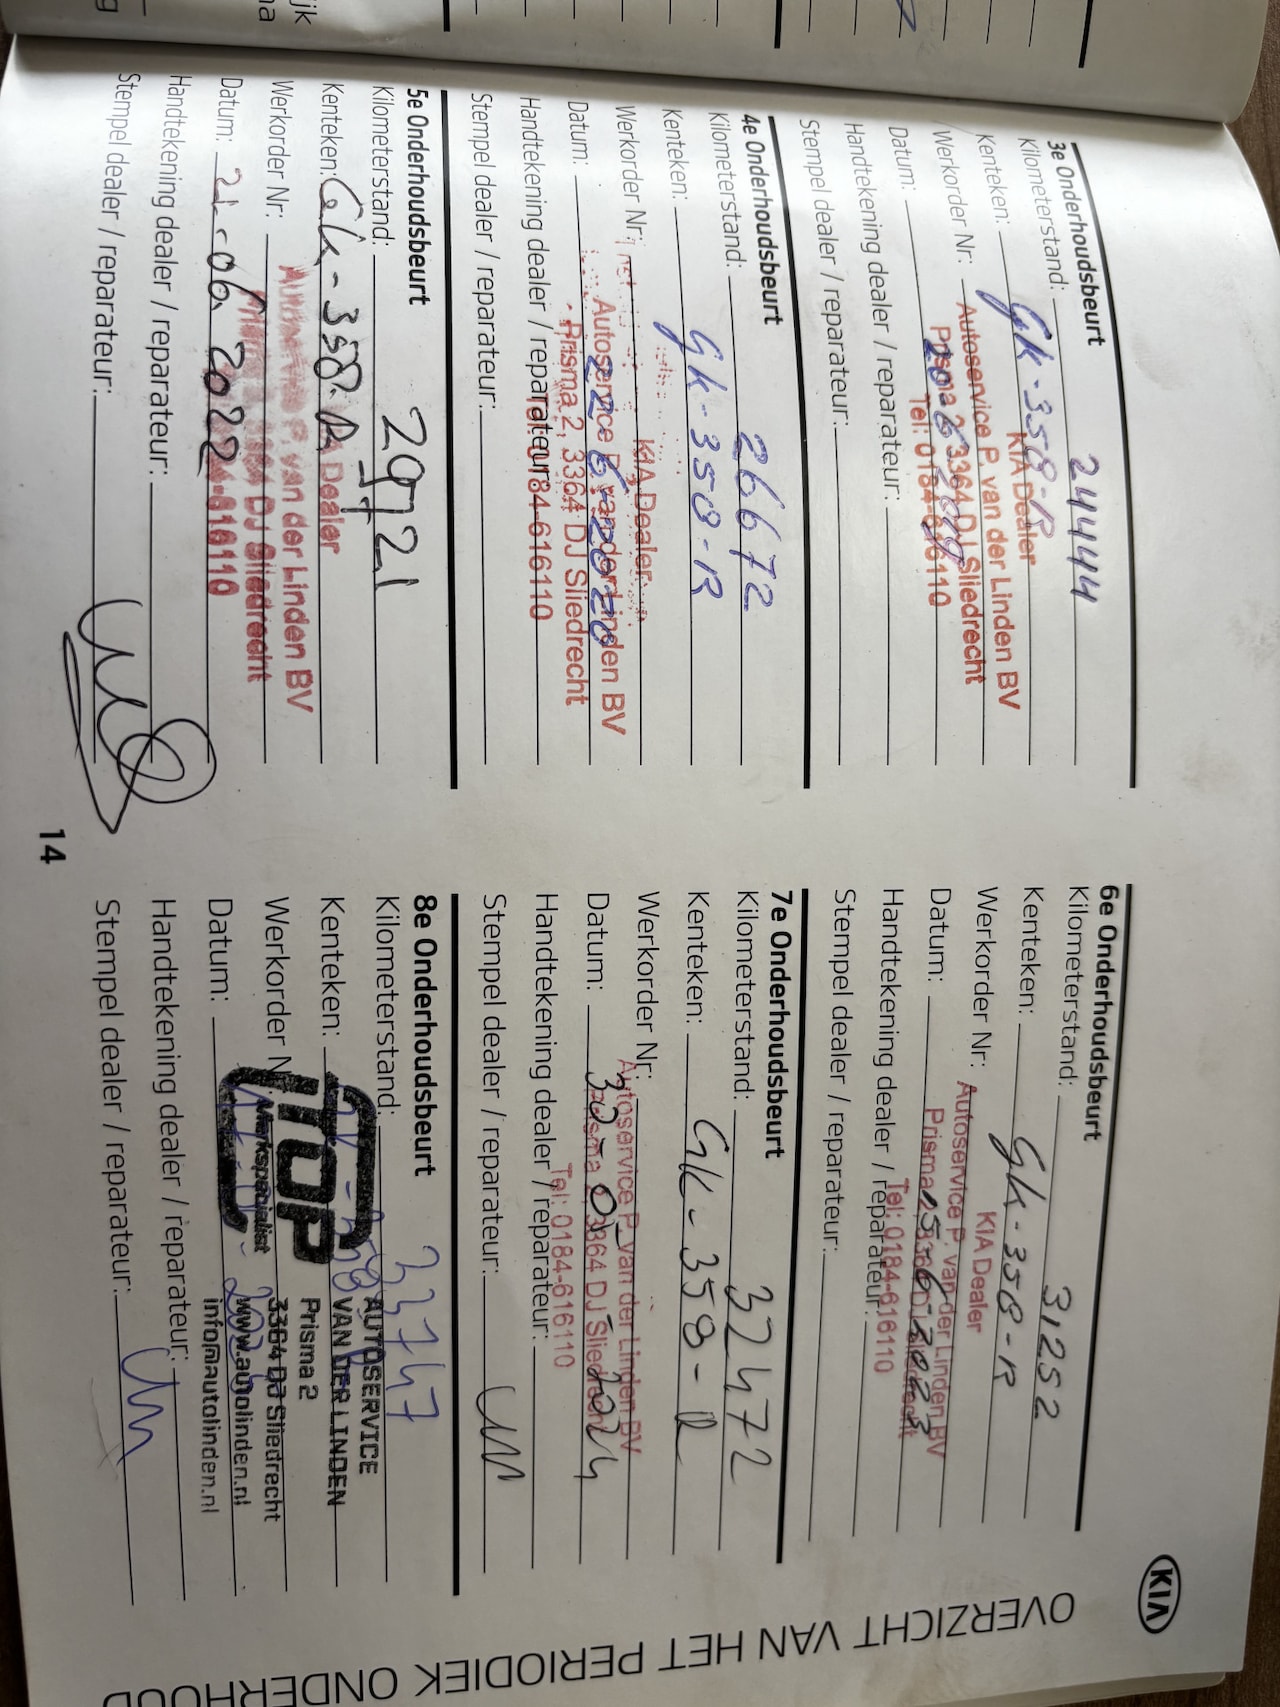 KIA
OVERZICHT VAN HET PERIODIEK ONDERHOUD
3e Onderhoudsbeurt
Kilometerstand: 24444
Kenteken: GK-358-R
KIA Dealer
Autoservice P. van der Linden BV
Werkorder Nr:
Prisma 2, 3364 DJ Sliedrecht
Datum:
Tel: 0184-616110
Handtekening dealer / reparateur:
Stempel dealer / reparateur:
4e Onderhoudsbeurt
Kilometerstand: 26672
Kenteken: GK-358-R
KIA Dealer
Werkorder Nr:
Autoservice P. van der Linden BV
Datum: 22-6-2020
Prisma 2, 3364 DJ Sliedrecht
Tel: 0184-616110
Handtekening dealer / reparateur:
Stempel dealer / reparateur:
5e Onderhoudsbeurt
Kilometerstand: 29721
Kenteken: GK-358-R
KIA Dealer
Autoservice P. van der Linden BV
Werkorder Nr:
Prisma 2, 3364 DJ Sliedrecht
Datum: 21-06-2022
0184-616110
Handtekening dealer / reparateur:
Stempel dealer / reparateur:
14
6e Onderhoudsbeurt
Kilometerstand: 31252
Kenteken: GK-358-R
KIA Dealer
Werkorder Nr:
Autoservice P. van der Linden BV
Datum: 15-6-2023
Prisma 2, 3364 DJ Sliedrecht
Tel: 0184-616110
Handtekening dealer / reparateur:
Stempel dealer / reparateur:
7e Onderhoudsbeurt
Kilometerstand: 32472
Kenteken: GK-358-R
Werkorder Nr:
Autoservice P. van der Linden BV
Datum:
Prisma 2, 3364 DJ Sliedrecht
Tel: 0184-616110
Handtekening dealer / reparateur:
Stempel dealer / reparateur:
8e Onderhoudsbeurt
Kilometerstand: 33747
Kenteken:
AUTOSERVICE
VAN DER LINDEN
Prisma 2
Werkorder N
Merkspecialist
3364 DJ Sliedrecht
www.autolinden.nl
Datum:
info@autolinden.nl
Handtekening dealer / reparateur:
Stempel dealer / reparateur: